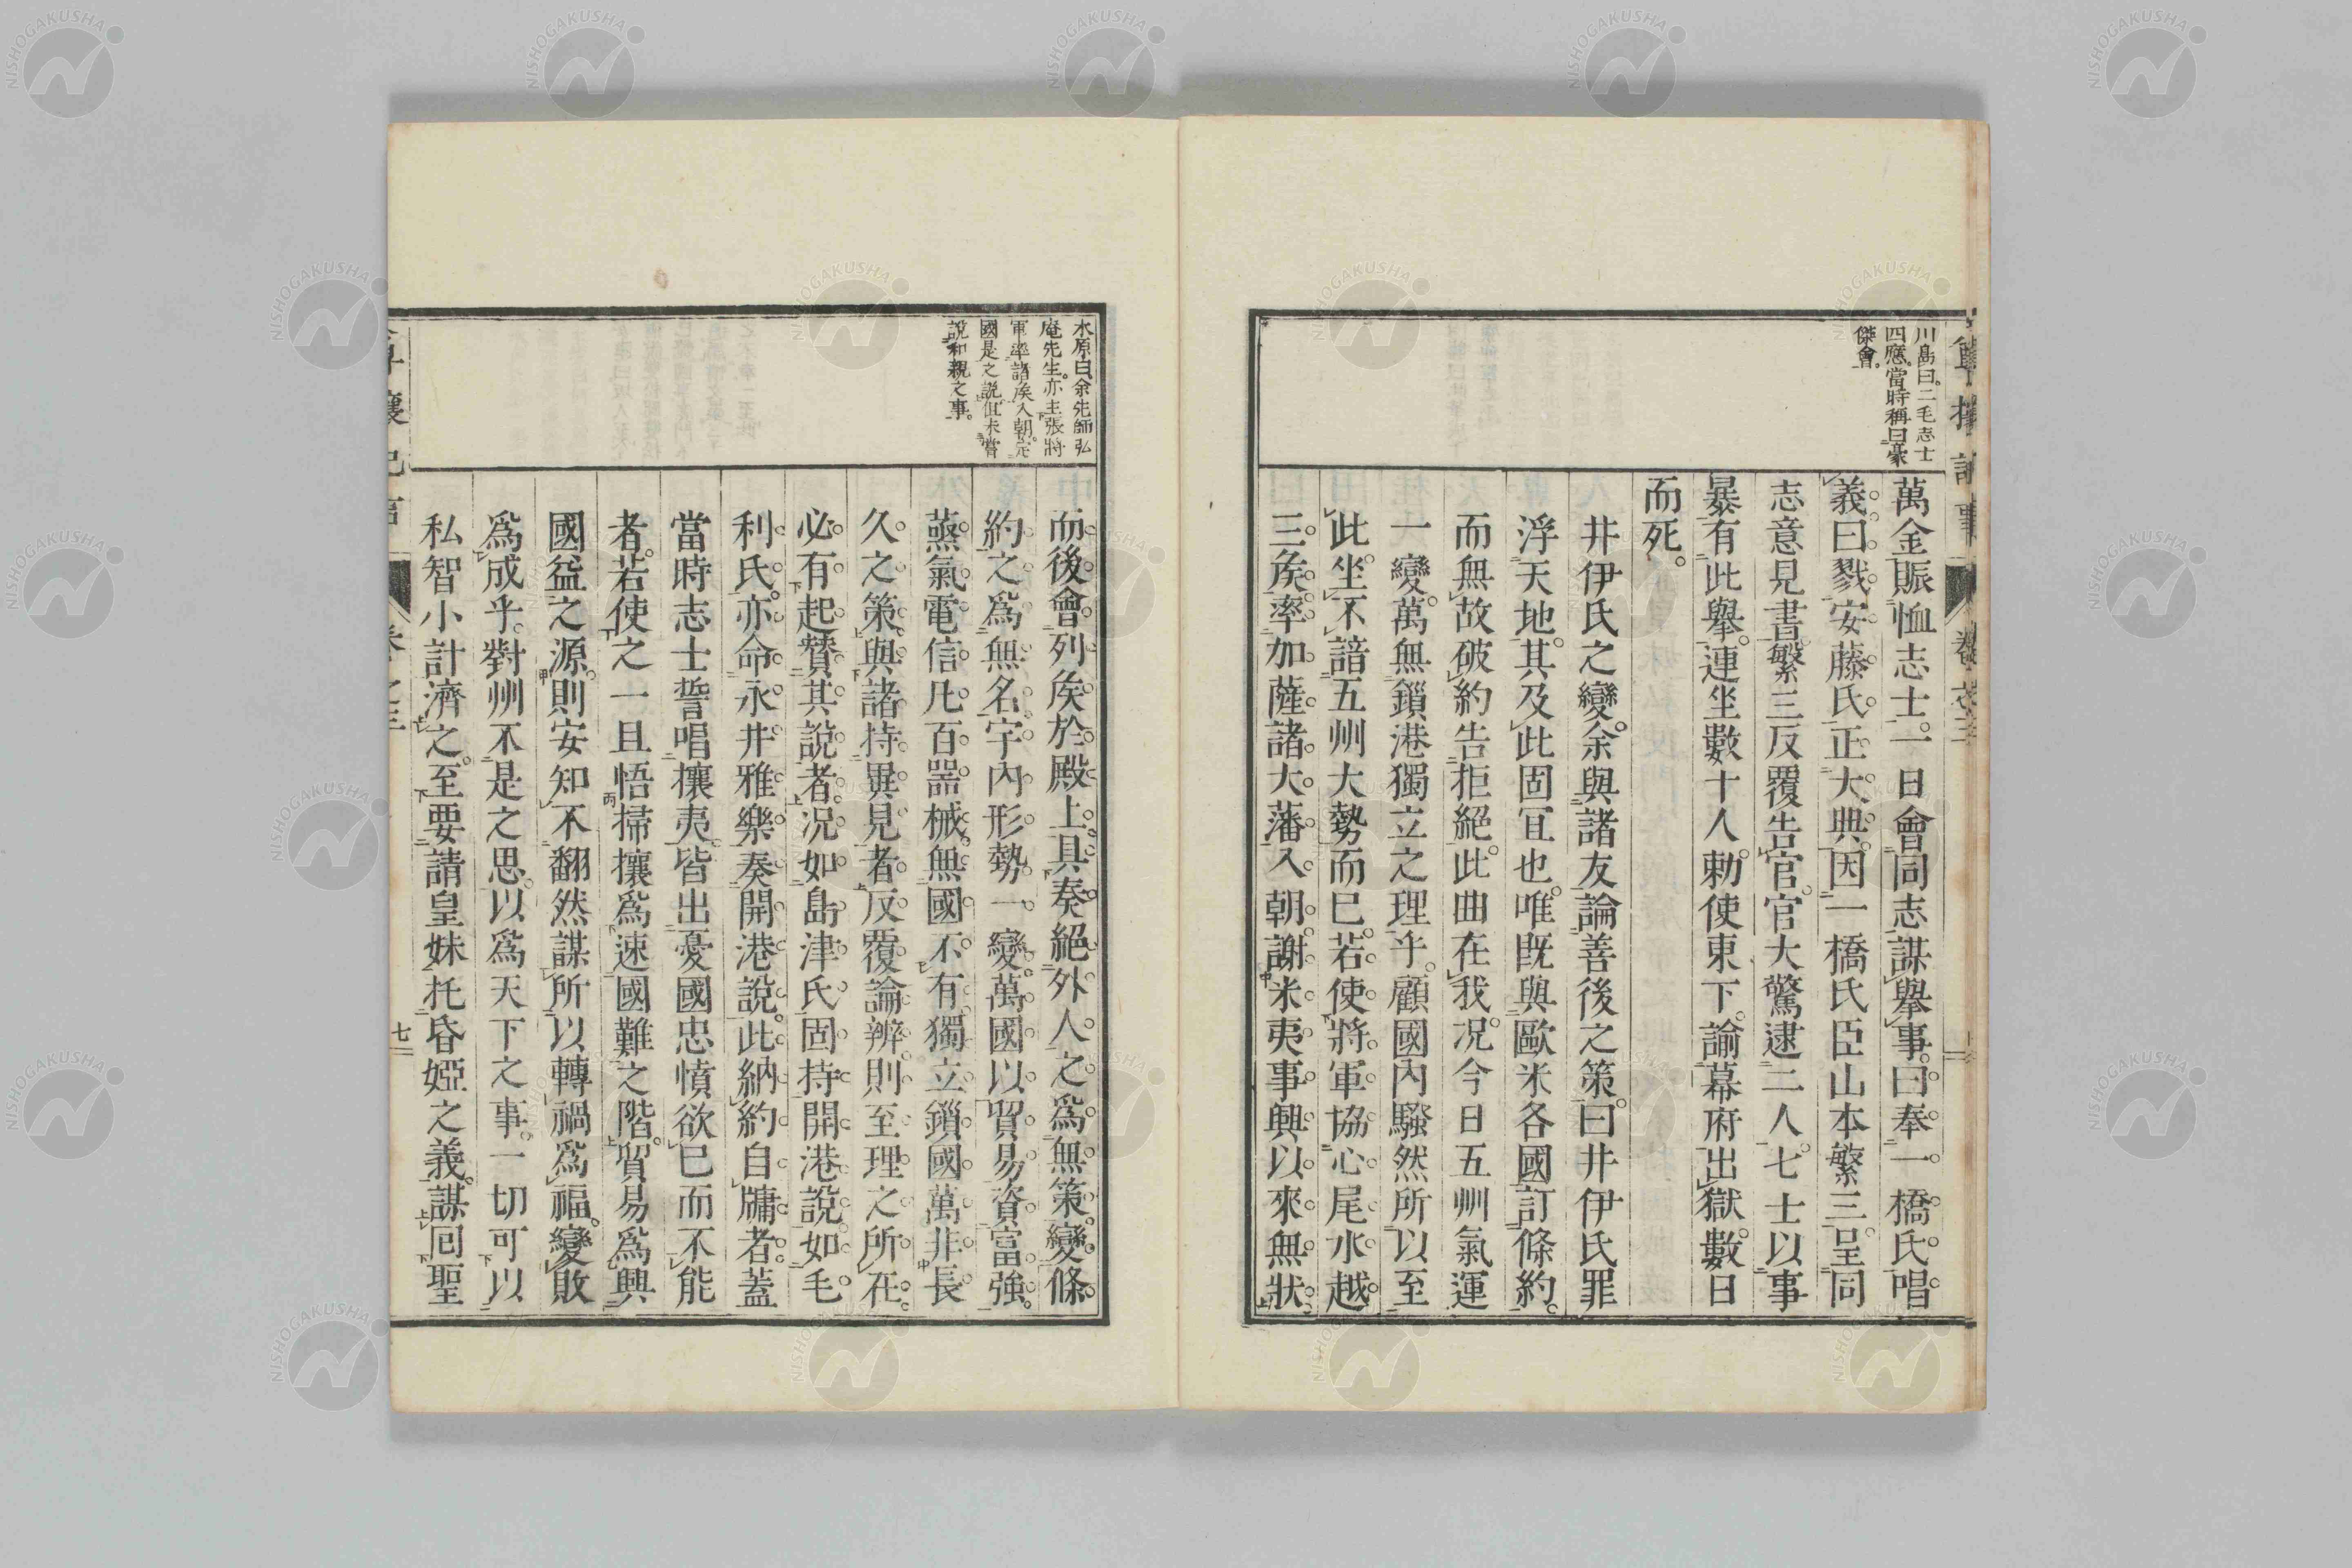 川島曰。二毛志士
四應。當時稱曰豪
傑會。
萬金賑恤志士。一日會同志謀擧事。曰奉一橋氏唱
義。曰戮安藤氏正大典。因一橋氏臣山本繁三呈同
志意見書。繁三反覆告官。官大驚逮二人。七士以事
暴有此擧。連坐數十人。勅使東下。諭幕府出獄。數日
而死。
井伊氏之變。余與諸友論善後之策。曰井伊氏罪
浮天地。其及此固宜也。唯既與歐米各國訂條約。
而無故破約告拒絕。此曲在我。况今日五州氣運
一變。萬無鎖港獨立之理乎。顧國內騷然所以至
此。坐不諳五州大勢而已。若使將軍協心尾水越
三矦。率加薩諸大藩入朝。謝米夷事興以來無狀。
水原曰。余先師弘
庵先生。亦主張將
軍率諸矦入朝。定
國是之說。但未嘗
說和親之事。
而後會列矦於殿上。具奏絕外人之爲無策。變條
約之爲無名。宇內形勢一變。萬國以貿易資富強。
蒸氣電信凡百器械。無國不有。獨立鎖國萬非長
久之策。與諸持異見者。反覆論辨。則至理之所在。
必有起贊其說者。况如島津氏固持開港說。如毛
利氏。亦命永井雅樂奏開港說。此納約自牖者。蓋
當時志士誓唱攘夷。皆出憂國忠憤欲已而不能
者。若使之一旦悟掃攘爲速國難之階。貿易爲興
國益之源。則安知不翻然謀所以轉禍爲福。變敗
爲成乎。對州不是之思。以爲天下之事。一切可以
私智小計濟之。至要請皇妹托昏婭之義。謀回聖
七